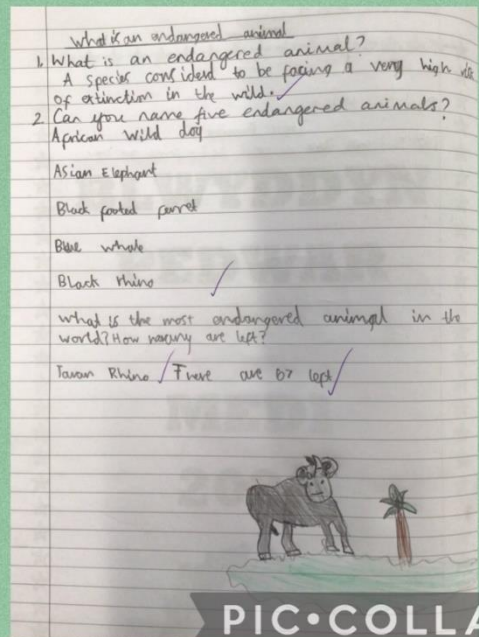 What is an endangered animal
1. What is an endangered animal?
A species considerd to be facing a very high risk
of extinction in the wild.
2 Can you name five endangered animals?
African wild dog
Asian Elephant
Black footed ferret
Blue whale
Black rhino
what is the most endangered animal in the
world? How many are left?
Javan Rhino There are 67 left
PIC•COLLA